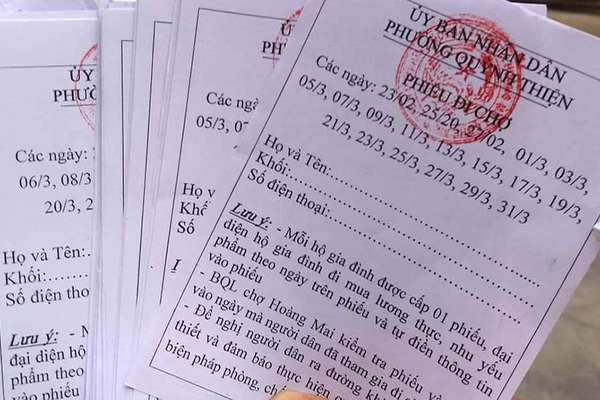 ỦY BAN NHÂN DÂN
PHƯỜNG QUỲNH THIỆN
PHIẾU ĐI CHỢ
Các ngày: 23/02, 25/20, 27/02, 01/3, 03/3,
05/3, 07/3, 09/3, 11/3, 13/3, 15/3, 17/3, 19/3,
21/3, 23/3, 25/3, 27/3, 29/3, 31/3
Họ và Tên:
Khối:
Số điện thoại:
Lưu ý: - Mỗi hộ gia đình được cấp 01 phiếu, đại
diện hộ gia đình đi mua lương thực, nhu yếu
phẩm theo ngày trên phiếu và tự điền thông tin
vào phiếu
- BQL chợ Hoàng Mai kiểm tra phiếu và
vào ngày mà người dân đã tham gia đi
- Đề nghị người dân ra đường
thiết và đảm bảo thực hiện
biện pháp phòng,
ỦY
PHƯỜ
05/3, 07/
Họ v
Khối
Số
ỦY
PHƯỜ
Các ngày:
06/3, 08/3
20/3, 2
Họ và Tên:
Khối:
Số điện thoạ
Lưu ý: - M
đại diện hộ
phẩm theo
vào phiếu